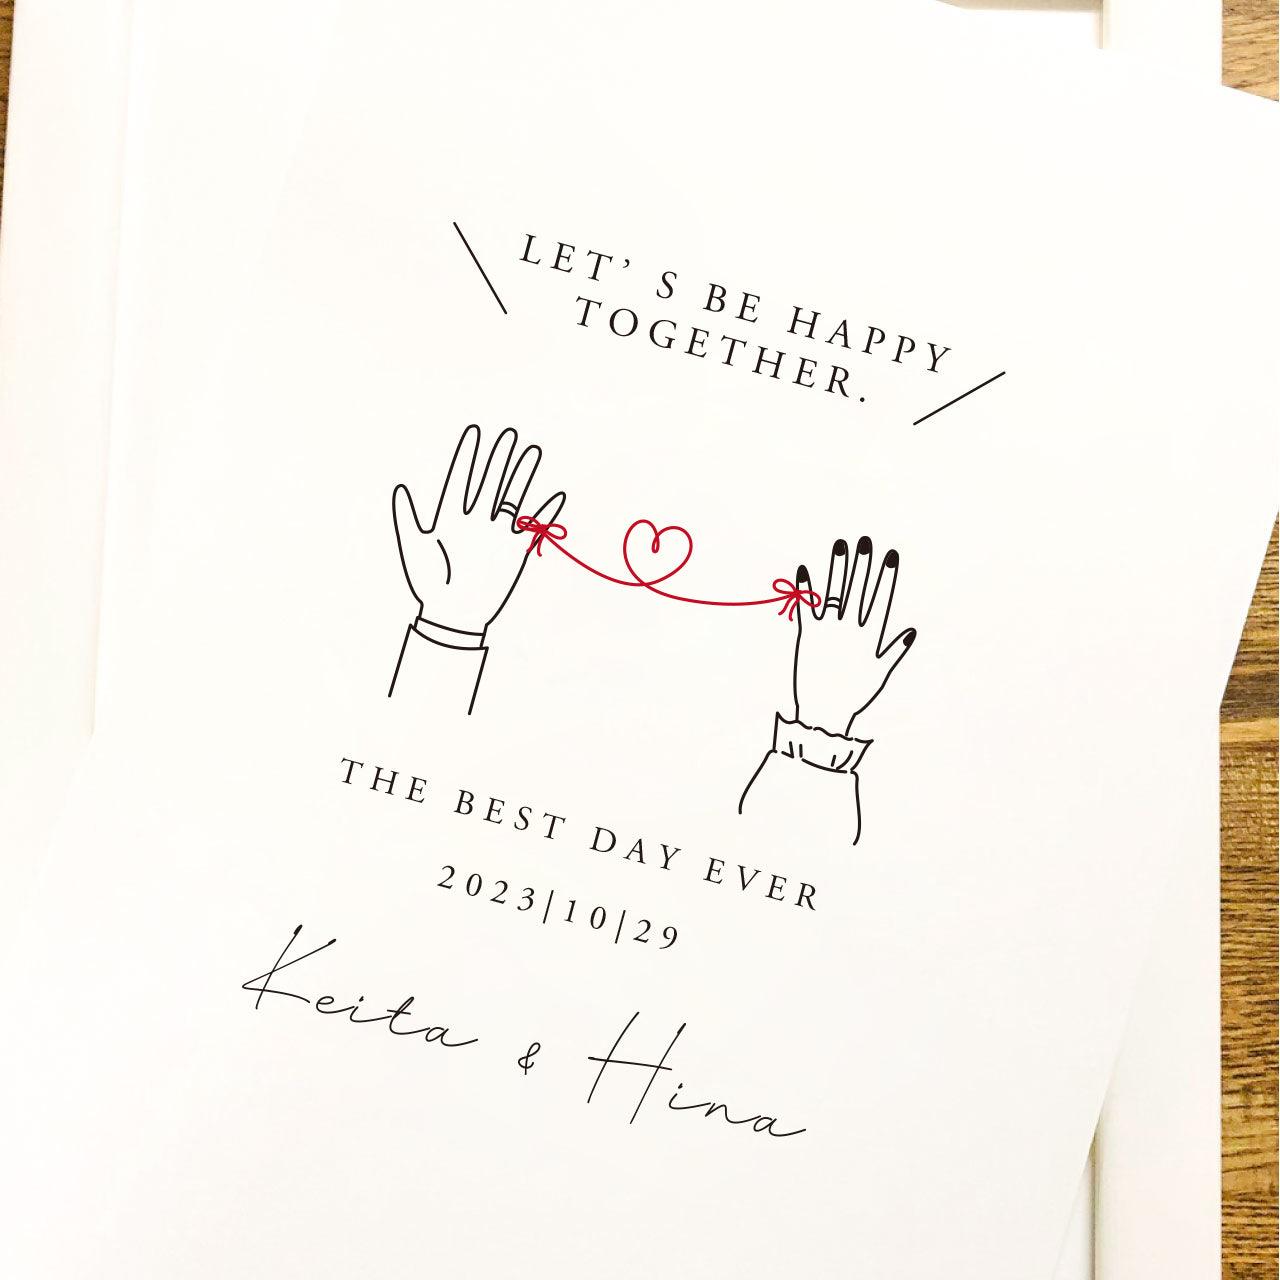 LET’ S BE HAPPY
TOGETHER.
THE BEST DAY EVER
2023|10|29
Keita & Hina